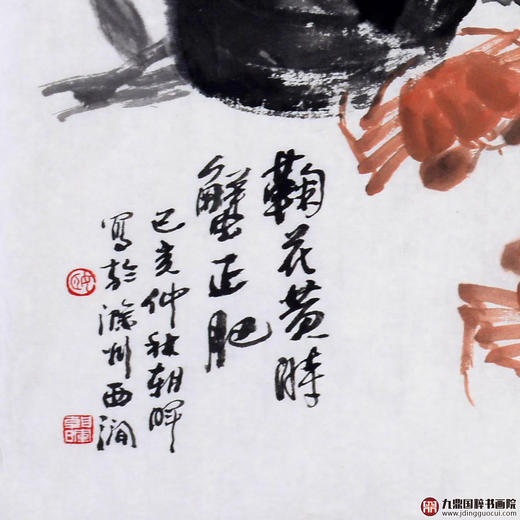 鞠花黄時
蟹正肥
己亥仲秋朝暉
寫於滁州西澗
九鼎国粹书画院
www.jdingguocui.com